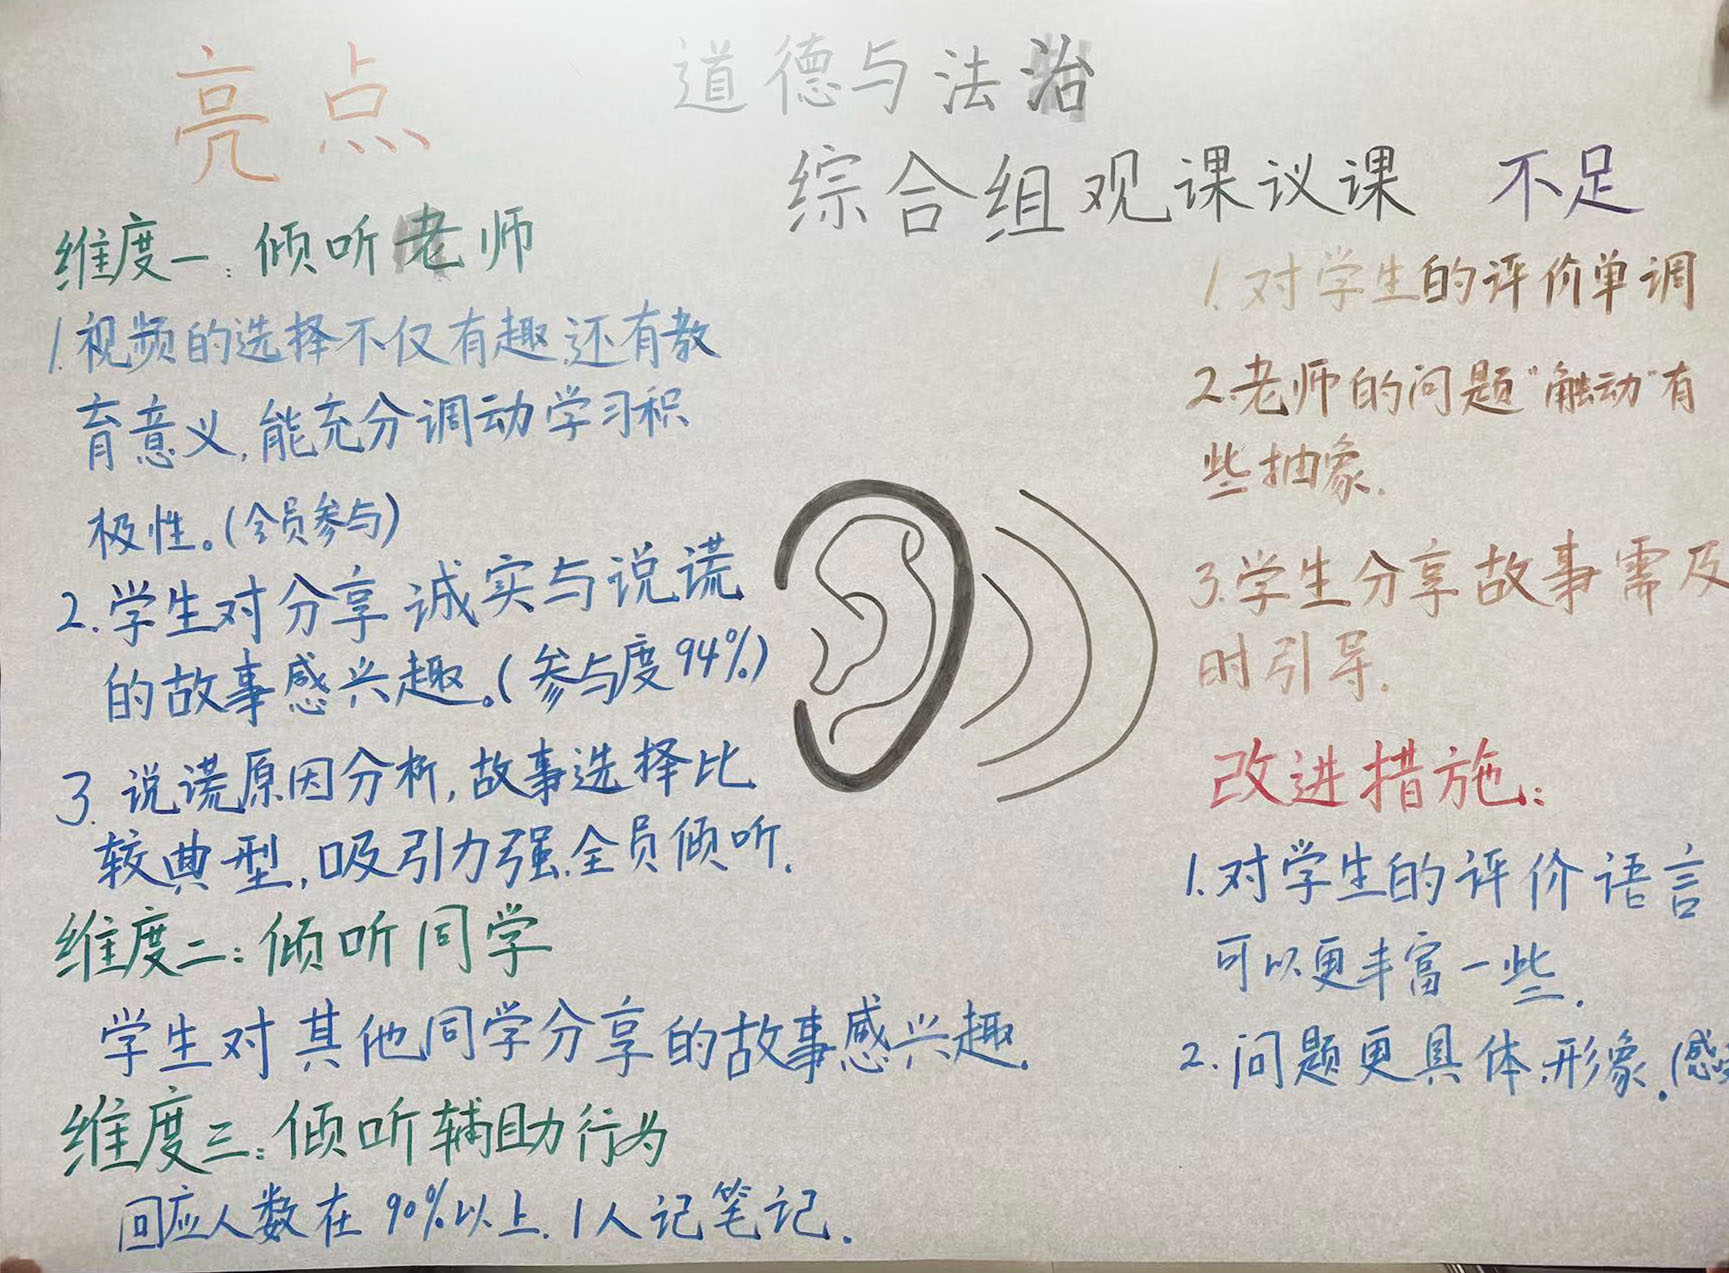 道德与法治
综合组观课议课
亮点
维度一：倾听老师
1.视频的选择不仅有趣.还有教
育意义,能充分调动学习积
极性。(全员参与)
2.学生对分享诚实与说谎
的故事感兴趣。(参与度94%)
3.说谎原因分析,故事选择比
较典型,吸引力强.全员倾听.
维度二：倾听同学
学生对其他同学分享的故事感兴趣.
维度三：倾听辅助行为
回应人数在90%以上.1人记笔记.
不足
1.对学生的评价单调
2.老师的问题“触动”有
些抽象.
3.学生分享故事需及
时引导.
改进措施：
1.对学生的评价语言
可以更丰富一些.
2.问题更具体.形象.(感